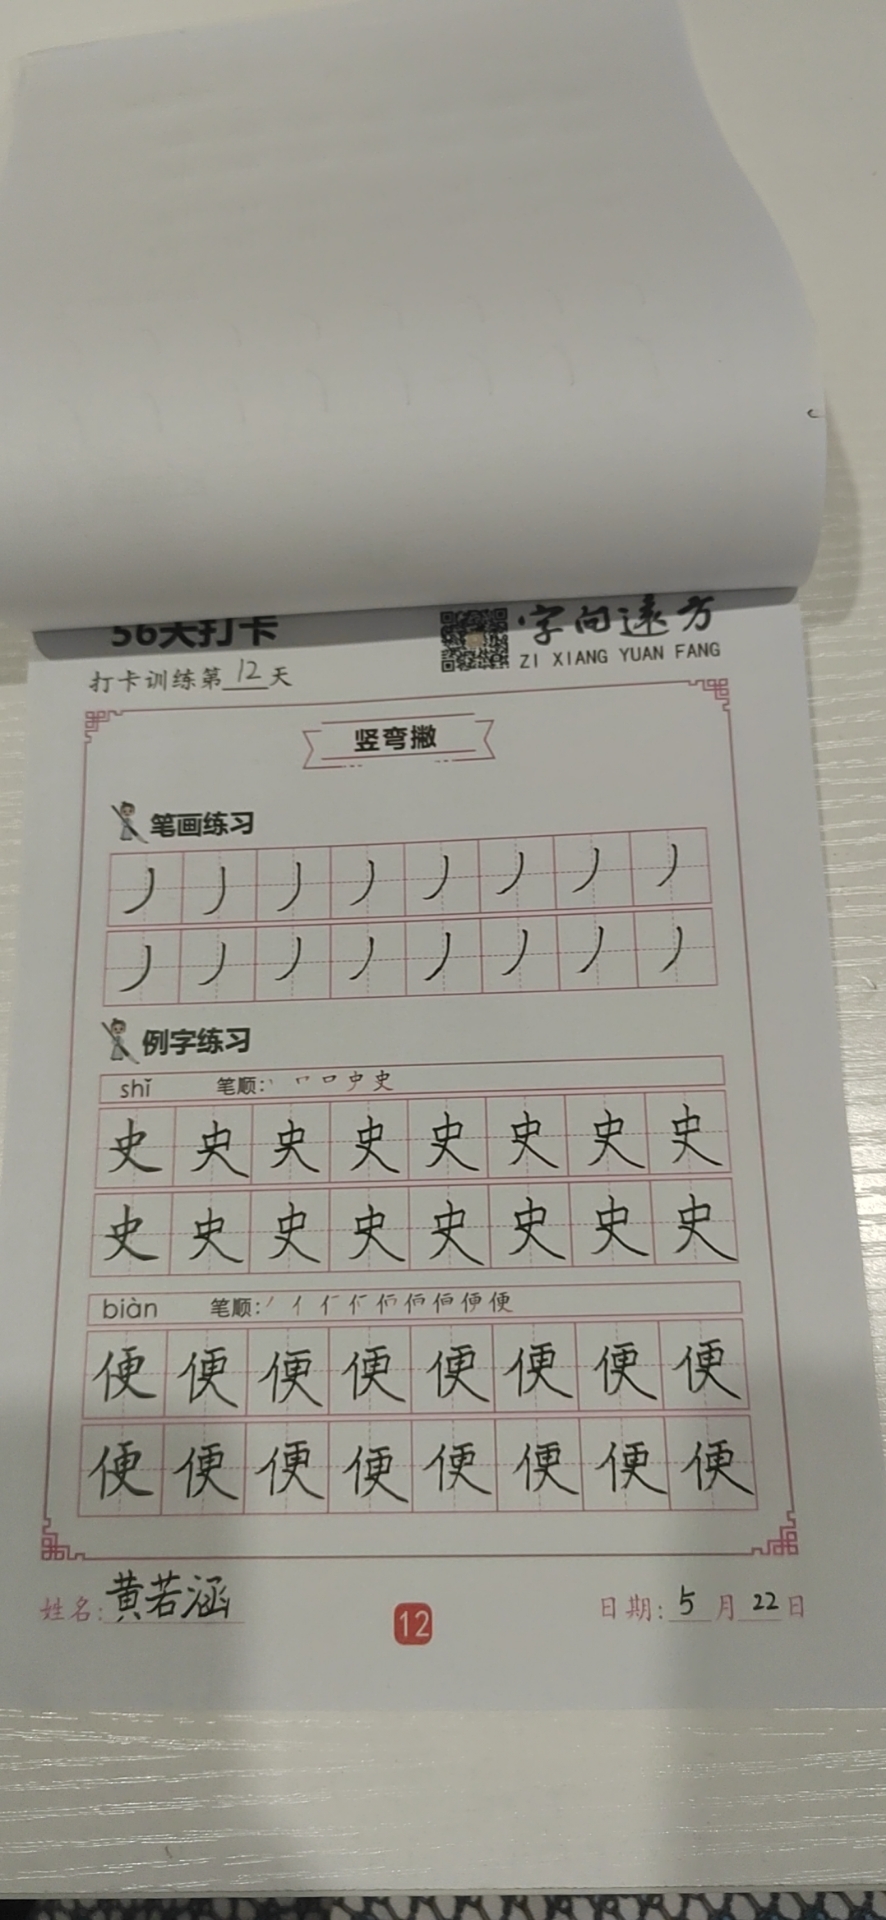 56天打卡
字向远方
ZI XIANG YUAN FANG
打卡训练第12天
竖弯撇
笔画练习
丿丿丿丿丿丿丿丿
丿丿丿丿丿丿丿丿
例字练习
shǐ 笔顺: 丨 𠃍 口 史 史
史史史史史史史史
史史史史史史史史
biàn 笔顺: 便
便便便便便便便便
便便便便便便便便
姓名: 黄若涵
12
日期: 5月22日